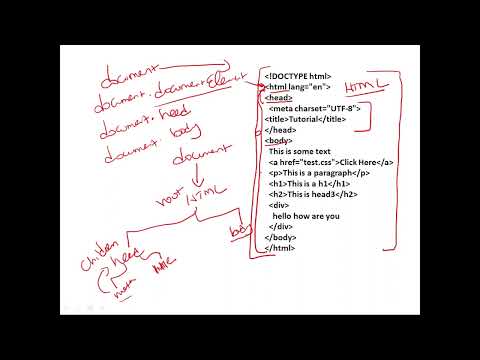 document
document. documentElement
document. head
document. body
document
root HTML
Children head
body
meta
title
HTML
<!DOCTYPE html>
<html lang="en">
<head>
<meta charset="UTF-8">
<title>Tutorial</title>
</head>
<body>
This is some text
<a href="test.css">Click Here</a>
<p>This is a paragraph</p>
<h1>This is a h1</h1>
<h2>This is head3</h2>
<div>
hello how are you
</div>
</body>
</html>